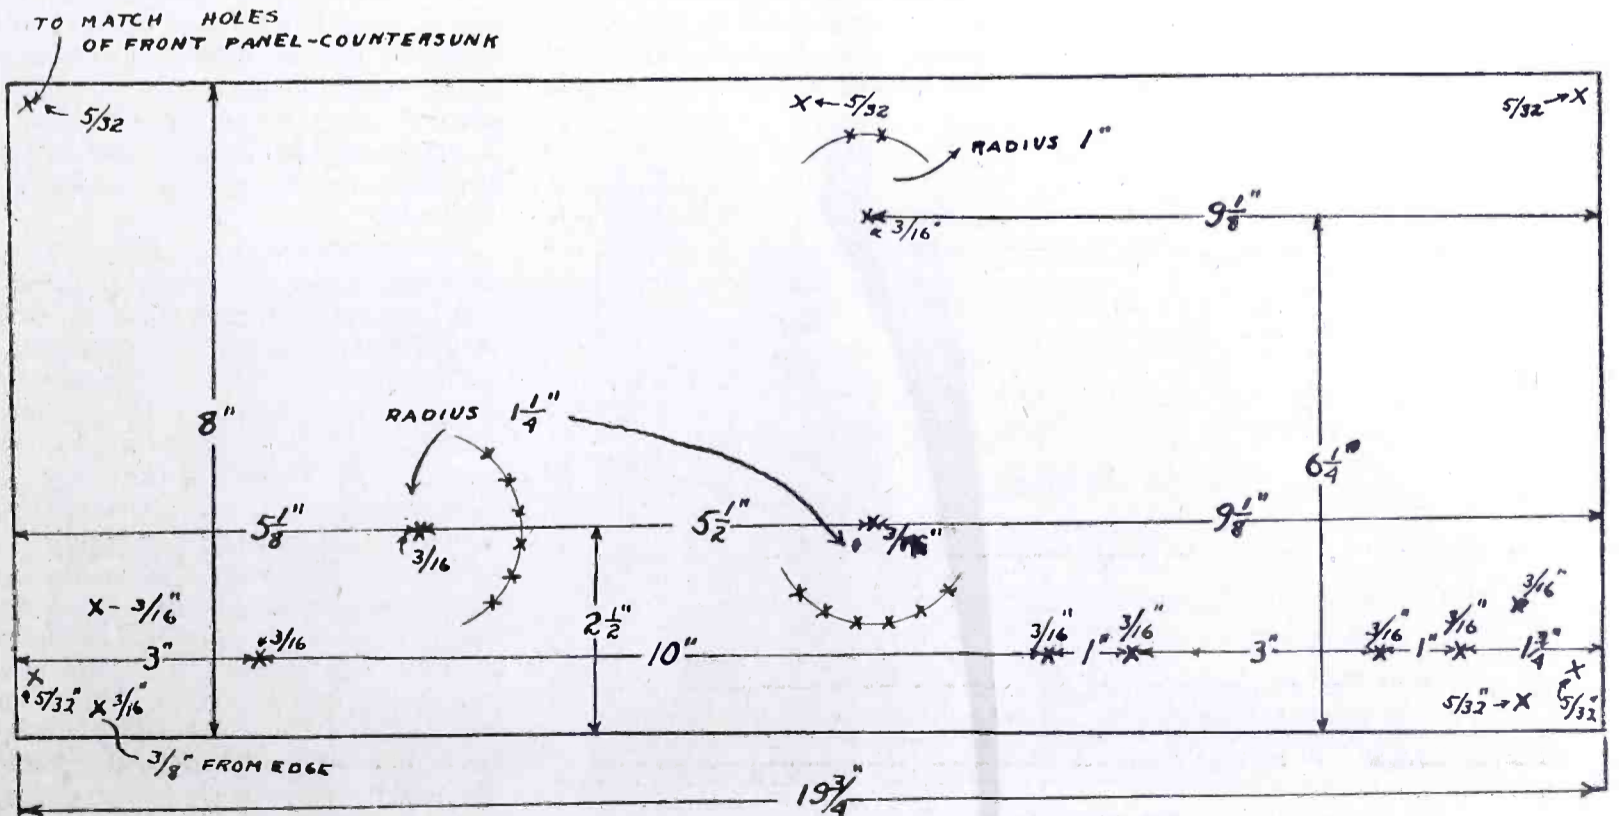 TO MATCH HOLES
OF FRONT PANEL-COUNTERSUNK
5/32
5/32
5/32
RADIUS 1"
9 1/8"
3/16"
8"
RADIUS 1 1/4"
6 1/4"
5 1/8"
5 1/2"
9 1/8"
3/16
3/16"
3/16"
3/16"
2 1/2"
3/16
3/16"
3/16"
3/16"
3/16"
3"
10"
1"
3"
1"
5/32"
3/16"
5/32"
5/32"
3/8" FROM EDGE
19 3/4"